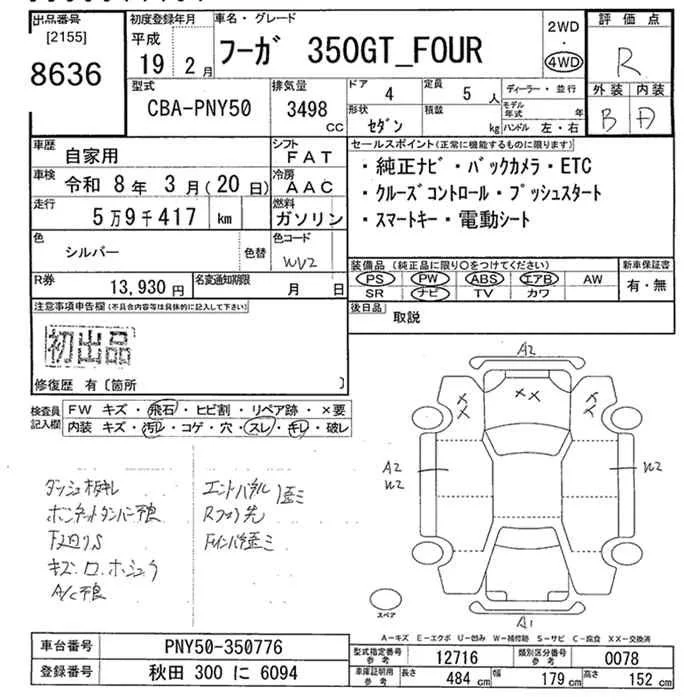 出品番号
[2155]
8636
初度登録年月
平成
19年 2月
車名・グレード
フーガ 350GT_FOUR
2WD
・
4WD
評価点
R
外装 内装
B A
型式
CBA-PNY50
排気量
3498
CC
ドア
4
定員
5 人
形状
セダン
積載
kg
ディーラー・並行
モデル年式 年
ハンドル 左・右
車歴
自家用
シフト
FAT
車検
令和 8年 3月(20日)
冷房
AAC
走行
5万9千417 km
燃料
ガソリン
色
シルバー
色替
色コード
WV2
R券
13,930円
名変通知期限
月 日
セールスポイント(正常に機能するものに限ります)
・純正ナビ・バックカメラ・ETC
・クルーズコントロール・プッシュスタート
・スマートキー・電動シート
装備品(純正品に限り○をつけてください)
PS PW ABS エアB AW
SR ナビ TV カワ
新車保証書
有・無
後日品
取説
注意事項申告欄(不具合内容等は具体的に記入して下さい)
初出品
修復歴 有〔箇所 〕
検査員
記入欄
FW キズ・飛石・ヒビ割・リペア跡・×要
内装 キズ・汚レ・コゲ・穴・スレ・キレ・破レ
A2
××
××
××
A2
W2
W2
A1
スペア
A-キズ E-エクボ U-凹み W-補修跡 S-サビ C-腐食 XX-交換済
車台番号
PNY50-350776
登録番号
秋田 300 に 6094
型式指定番号
参考
12716
類別区分番号
参考
0078
車庫証明用
参考
長さ
484cm
幅
179cm
高さ
152cm